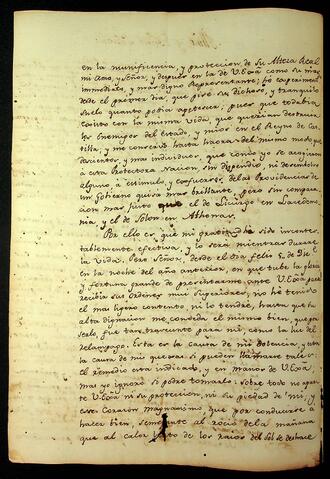 en la munificencia, y proteccion de Su Alteza Real
mi Amo, y Señor, y despues en la de V.Exâ como su mas
immediato, y mas digno Representante; hè experiment
desde el primer dia, que pisè su dichoso, y tranquilo
suelo quanto podia apetecer, pues que todabia
exîsto con la misma vida, que querian destruir
los Enemigos del estado, y mios en el Reyno de Cas-
tilla, y me conserva hasta haora del mismo modo que
doscientos, y mas individuos, que conmigo se acogieron
à esta Protectora Nacion, sin dispendio, ni descredito
alguno, à estimulo, y esfuerzos de las Providencias de
un Govierno quisa mas brillante, pero sin compara
cion mas justo que el de Licurgo en Lacedemo
nia, y el de Solon en Athenas.
Por ello es, que mi gratitud ha sido incontes
tablemente efectiva, y lo serà mientras durare
la vida. Pero Señor, desde el dia felis 8 de
en la noche del año anterior, en que tube la gloria
y fortuna grande de presentarme ante V.Exâ para
recibir sus ordenes muy Superiores, no hè tenido
el mas ligero contento ni lo tendrè, hasta que su
alta dignacion me conceda el mismo bien, que pa
sado, fue tan transeunte para mi, como la luz del
relampago. Esta es la causa de mi dolencia, y esta
la causa de mis quexas si pueden llamarse tales:
el remedio està indicado, y en manos de V.Exâ
mas yo ignoro si podrè tomarlo: sobre todo no apar
te V.Exâ ni su proteccion, ni su piedad de mi, y
ese Corazon magnanimo, que por conducirse à
hacer bien, semejante al rocio de la mañana
que al calor de los raios del Sol se deshace